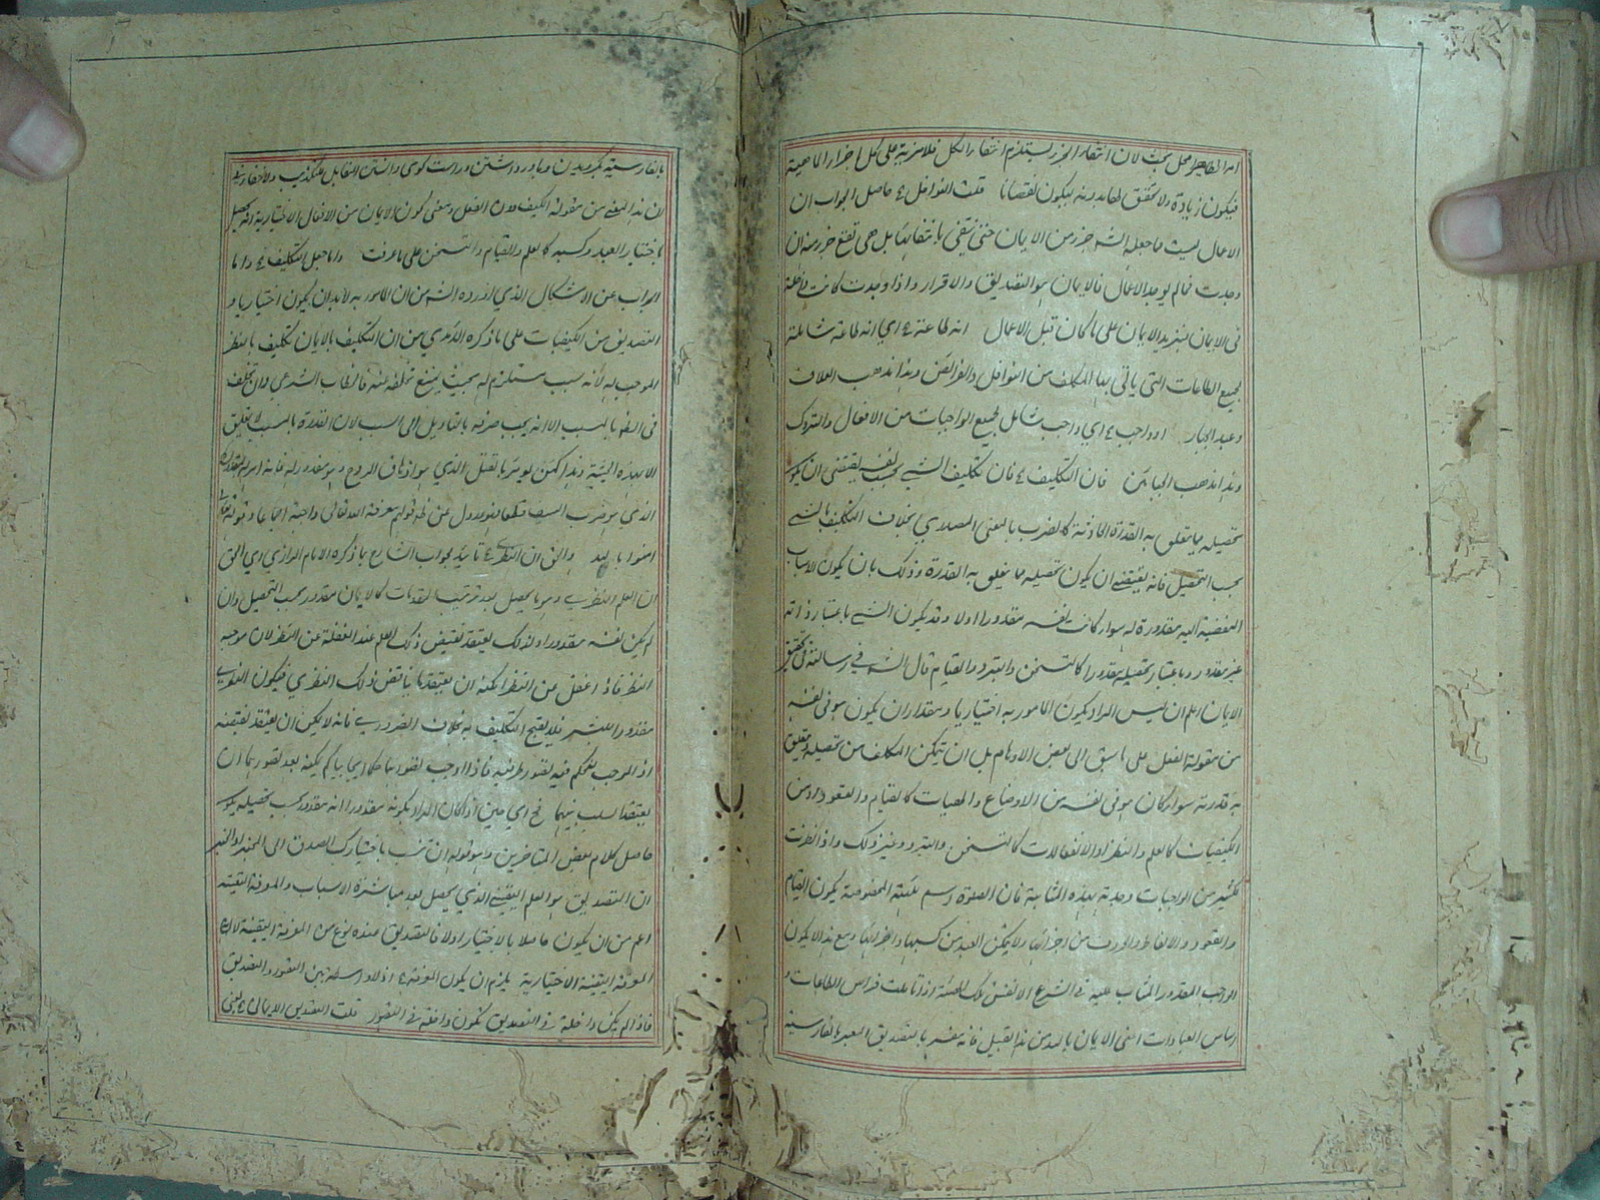 فيكون زيادة ولا تحقق لما بدونه ليكون نقصانا قلت النوافل ع حاصل الجواب ان
الاعمال ليست مما جعله الشرع جزء من الايمان حتى ينتفي بانتفائها بل هي تقع جزء منه ان
وجدت فما لم يوجد الاعمال فالايمان هو التصديق والاقرار واذا وجدت كانت داخلة
فى الايمان فيزيد الايمان على ما كان قبل الاعمال انه طاعة ع اي انه طاعة شاملة
لجميع الطاعات التى يأتي بها المكلف من النوافل والفرائض وهذا مذهب العلاف
وعبد الجبار او واجب ع اي واجب شامل لجميع الواجبات من الافعال والتروك
وهذا مذهب الجبائين فان التكليف ع فان تكليف الشيء بحسب نفسه يقتضى ان يكون
تحصيله مما يتعلق به القدرة الحادثة كالضرب بالمعنى المصدري بخلاف التكليف بالشيء
بحسب التحصيل فانه يقتضي ان يكون تحصيله مما يتعلق به القدرة وذلك بان يكون الاسباب
المفضية اليه مقدورة له سواء كانت نفسه مقدورا اولا وقد يكون الشيء باعتبار ذاته
غير مقدور وباعتبار تحصيله مقدورا كالتسخن والتبرد والقيام قال الش في رسالته فى تحقيق
الايمان اعلم ان ليس المراد بكون المأمور به اختياريا ومقدورا ان يكون هو فى نفسه
من مقولة الفعل على ما سبق الى بعض الاوهام بل ان يتمكن المكلف من تحصيله ويتعلق
به قدرته سواء كان هو فى نفسه من الاوضاع والهيئات كالقيام والقعود او من
الكيفيات كالعلم والنظر او الانفعالات كالتسخن والتبرد وغير ذلك واذا نظرت
كثير من الواجبات وجدته بهذه المثابة فان الصلوة اسم للهيئة المخصوصة يكون القيام
والقعود والالفاظ والحروف من اجزائها ولا يمكن العبد من كسبها واجزائها ومع هذا لا يكون
الواجب المقدور المثاب عليه في الشرع الا نفس تلك الهيئة اذا تأملت فرأس الطاعات و
اساس العبادات اعنى الايمان بالله من هذا القبيل فانه مفسر بالتصديق المعبر بالفارسية
بالفارسية بگرويدن وباور داشتن وراست گوى دانستن المقابل للتكذيب
ان هذا المعنى من مقولة الكيف دون الفعل ومعنى كون الايمان من الافعال الاختيارية انه يحصل
باختيار العبد وكسبه كالعلم والقيام والتسخن على ما عرفت واما جعل التكليف ع واما
الجواب عن الاشكال الذي اورده الش من ان المأمور به لابد ان يكون اختياريا و
التصديق من الكيفيات على ما ذكره الآمدي من ان التكليف بالايمان تكليف بالنظر
الموجب له لأنه سبب مستلزم له بحيث يمتنع تخلفه عنه فالخطاب الشرعي وان تعلق
فى الظاهر بالمسبب الا انه يجب صرفه بالتأويل الى السبب لان القدرة بالمسبب لا يتعلق
الا بهذه الحيثية وهذا كمن يؤمر بالقتل الذي هو ازهاق الروح
الذي هو ضرب السيف قطعا فعدول عن ظاهر قولهم معرفة الله تعالى واجبة اجماعا
امنوا بالله والحق ان النظري ع تأييد لجواب الشارح بما ذكره الامام الرازي اي الحق
ان العلم النظري وهو ما يحصل بعد ترتيب المقدمات كالايمان مقدور بحسب التحصيل وان
لم يكن نفسه مقدورا ولذلك يعتقد نقيض ذلك العلم عند الغفلة عن النظر لان موجبه
النظر فاذا غفل عن النظر امكنه ان يعتقد ما يناقض ذلك النظري فيكون النظري
مقدورا للبشر فلا يقبح التكليف به بخلاف الضروري فانه لا يمكن ان يعتقد نقيضه
اذ الموجب للحكم فيه تصور طرفيه فاذا اوجب تصورهما حكما ايجابيا لم يمكنه بعد تصورهما ان
يعتقد السلب بينهما نح اي حين اذ كان المراد بكونه مقدورا انه مقدور بحسب تحصيله يكون
حاصل كلام بعض المتأخرين وهو قوله ان تنسب باختيارك الصدق الى المخبر او الخبر
ان التصديق هو العلم اليقيني الذي يحصل بعد مباشرة الاسباب والمعرفة اليقينية
اعم من ان يكون حاصلا بالاختيار اولا فالتصديق عنده نوع من المعرفة اليقينية
المعرفة اليقينية الاختيارية يلزم ان يكون المعرفة ع اذ لا واسطة بين التصور والتصديق
فاذا لم يكن داخلة في التصديق تكون داخلة في التصور قلت التصديق الايمانى ع يعنى